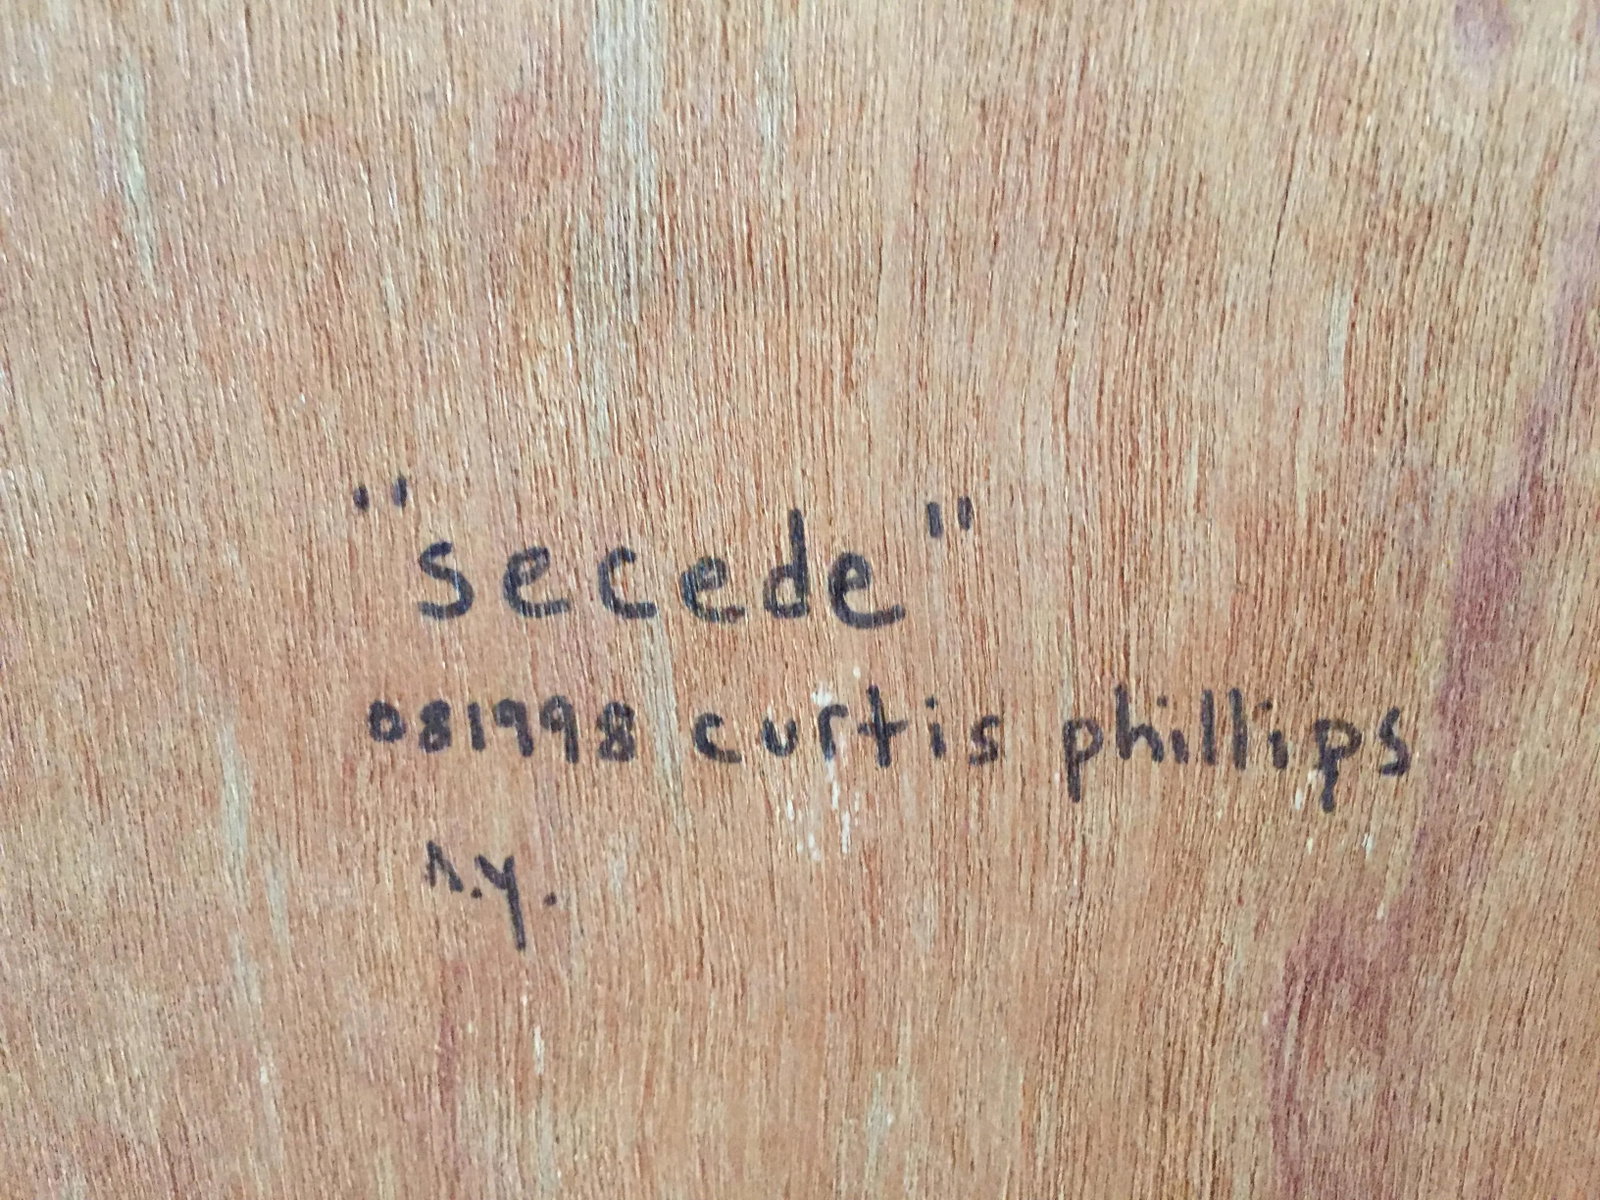 "secede"
081998 curtis phillips
n.y.